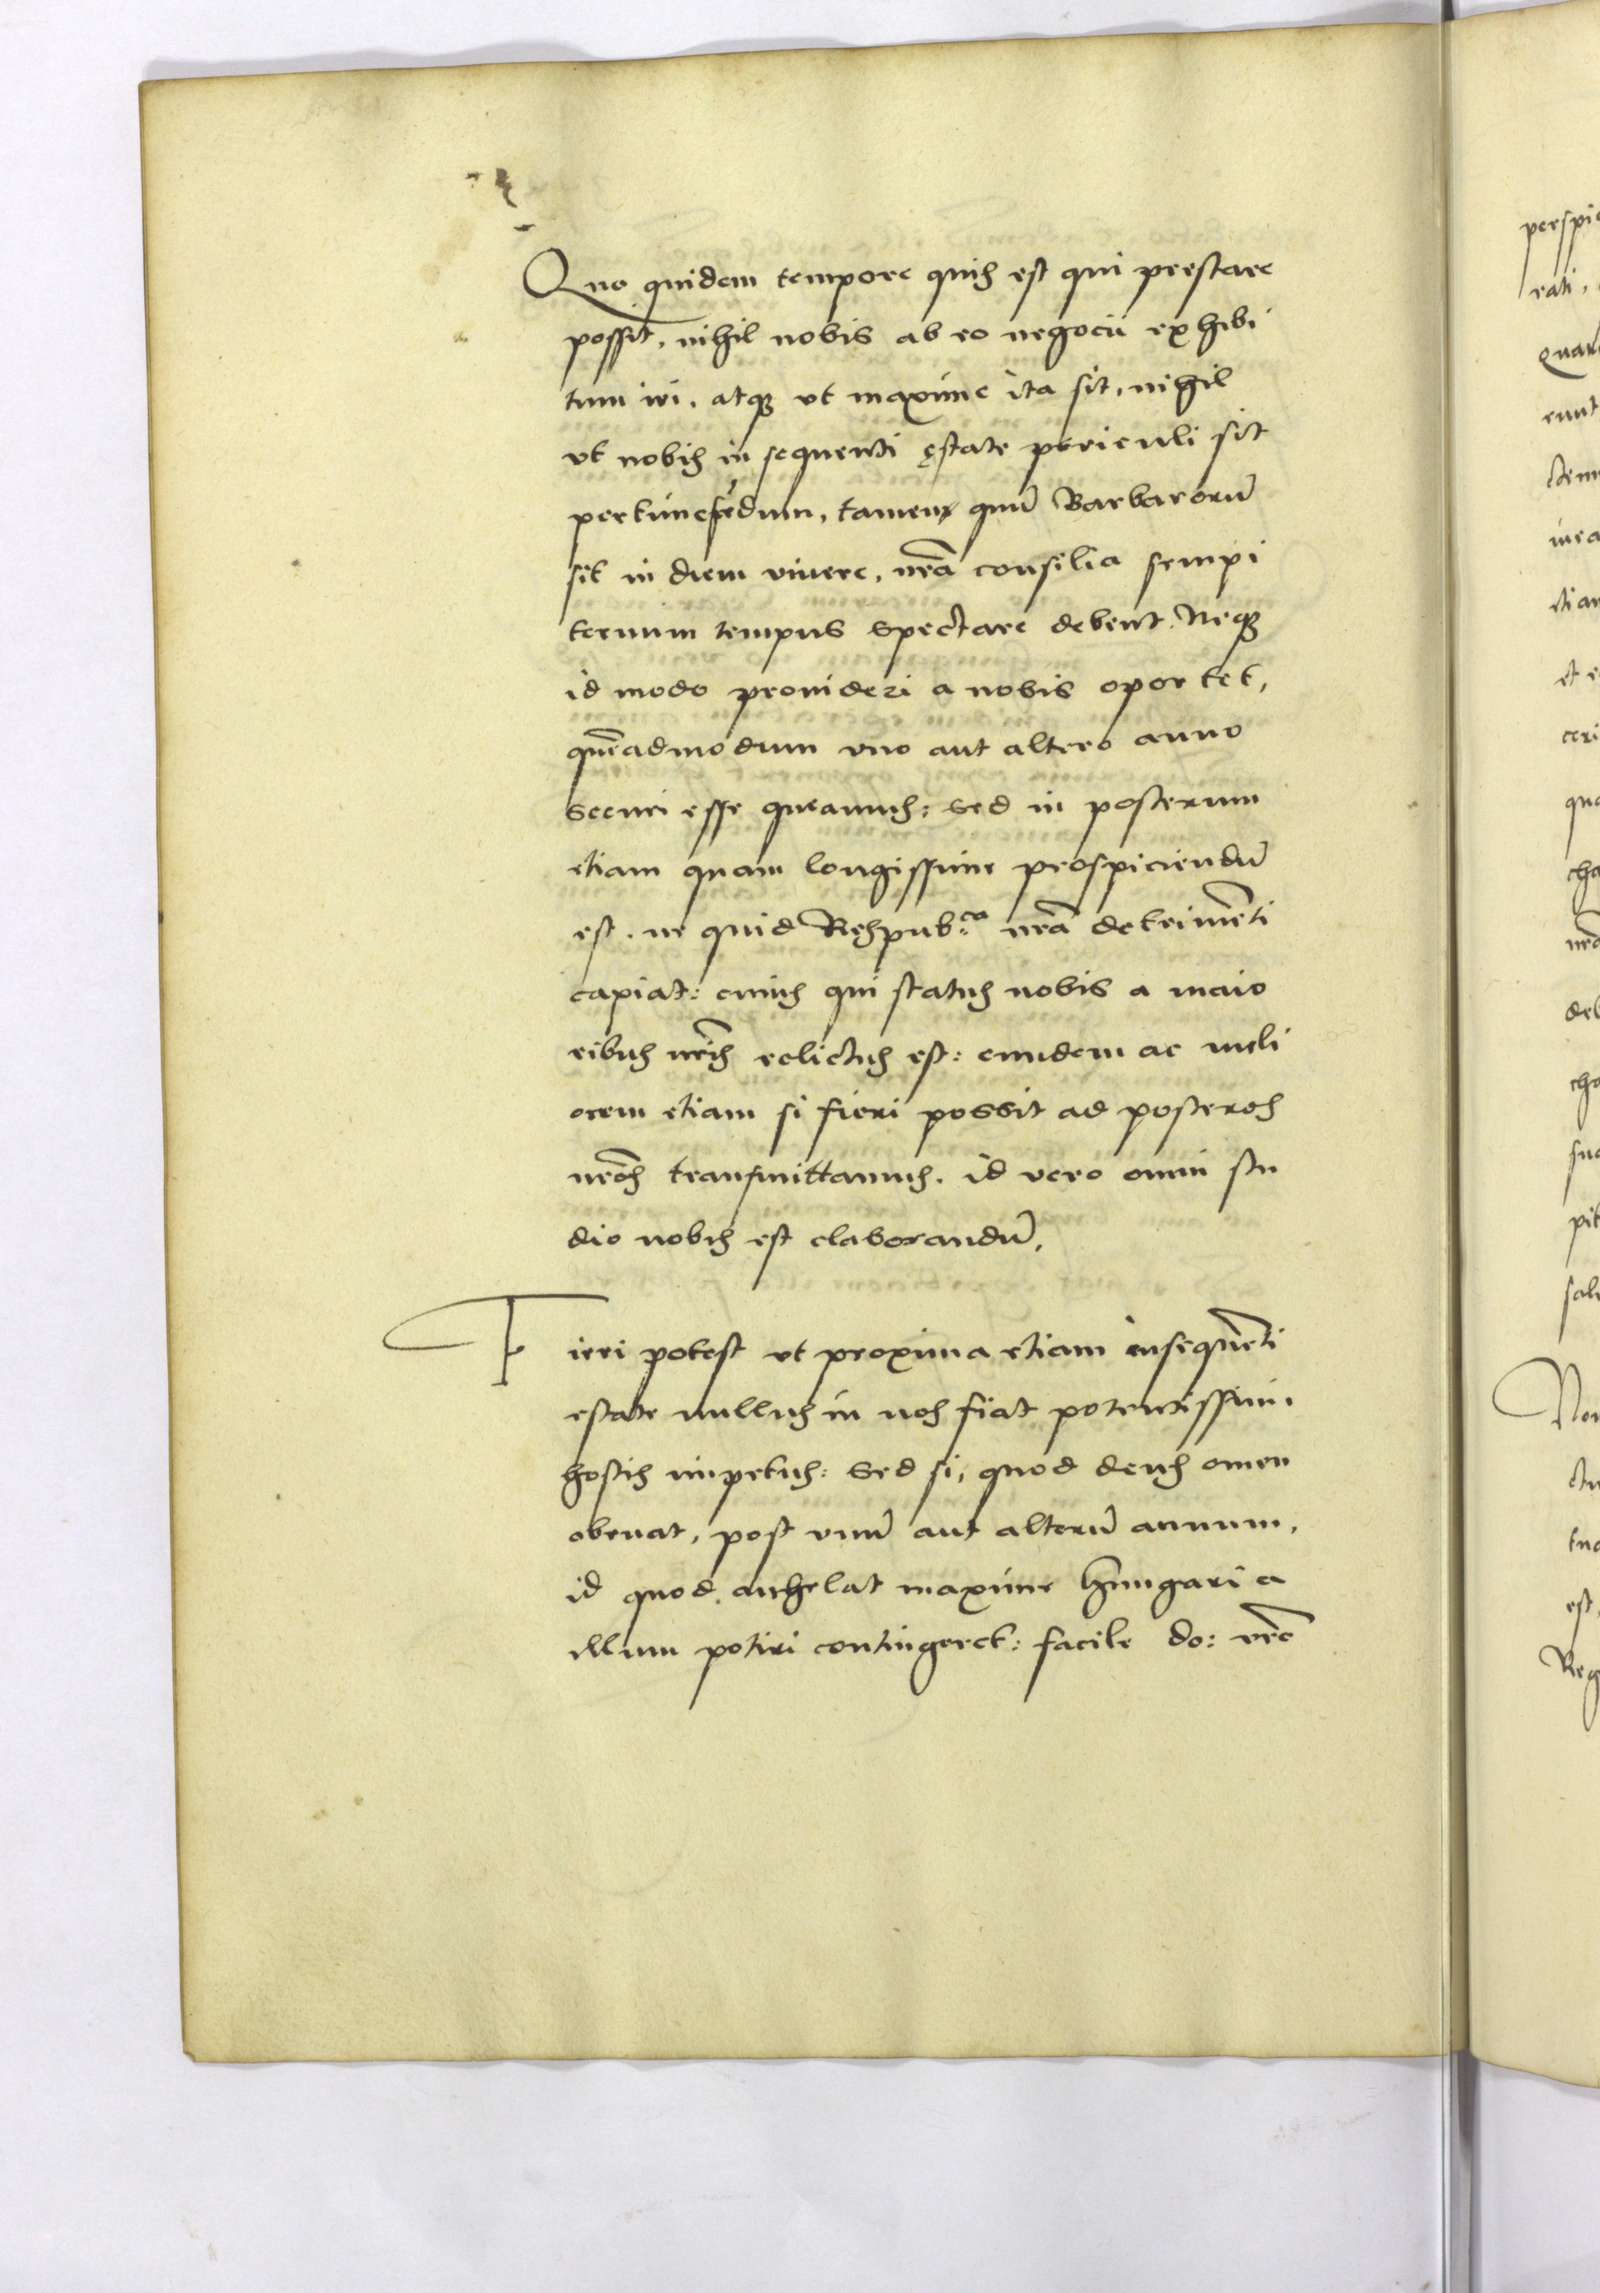 Quo quidem tempore quis est qui prestare
possit, nihil nobis ab eo negocii exhibi
tum iri. atq3 vt maxime ita sit, nihil
vt nobis in sequenti ęstate periculi sit
pertimescēdum, tamen quū Barbarorū
sit in diem viuere, nr̄a consilia sempi
ternum tempus spectare debent. Neq3
id modo prouideri a nobis oportet,
quēadmodum vno aut altero anno
securi esse queamus: sed in posterum
etiam quam longissime prospiciendū
est. ne quid Respub:ca nr̄a detrimēti
capiat: cuius qui status nobis a maio
ribus nr̄is relictus est: eundem ac meli
orem etiam si fieri possit ad posteros
nr̄os transmittamus. id vero omni stu
dio nobis est elaborandū.
Fieri potest vt proxima etiam insequēti
estate nullus in nos fiat potentissimi
hostis impetus: sed si, quod deus omen
obruat, post vnū aut alterū annum,
id quod anhelat maxime Hungaria
illum potiri contingeret: facile do: vr̄e
perspi
rati,
Quar
eunt
et e
ceri
qua
cha
nr̄a
deb
cha
sua
pit
salu
Non
ctu
tua
est,
Reg